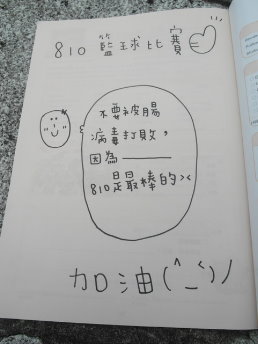 810 籃球比賽
不要被腸
病毒打敗，
因為————
810是最棒的><
加油(^_^)/